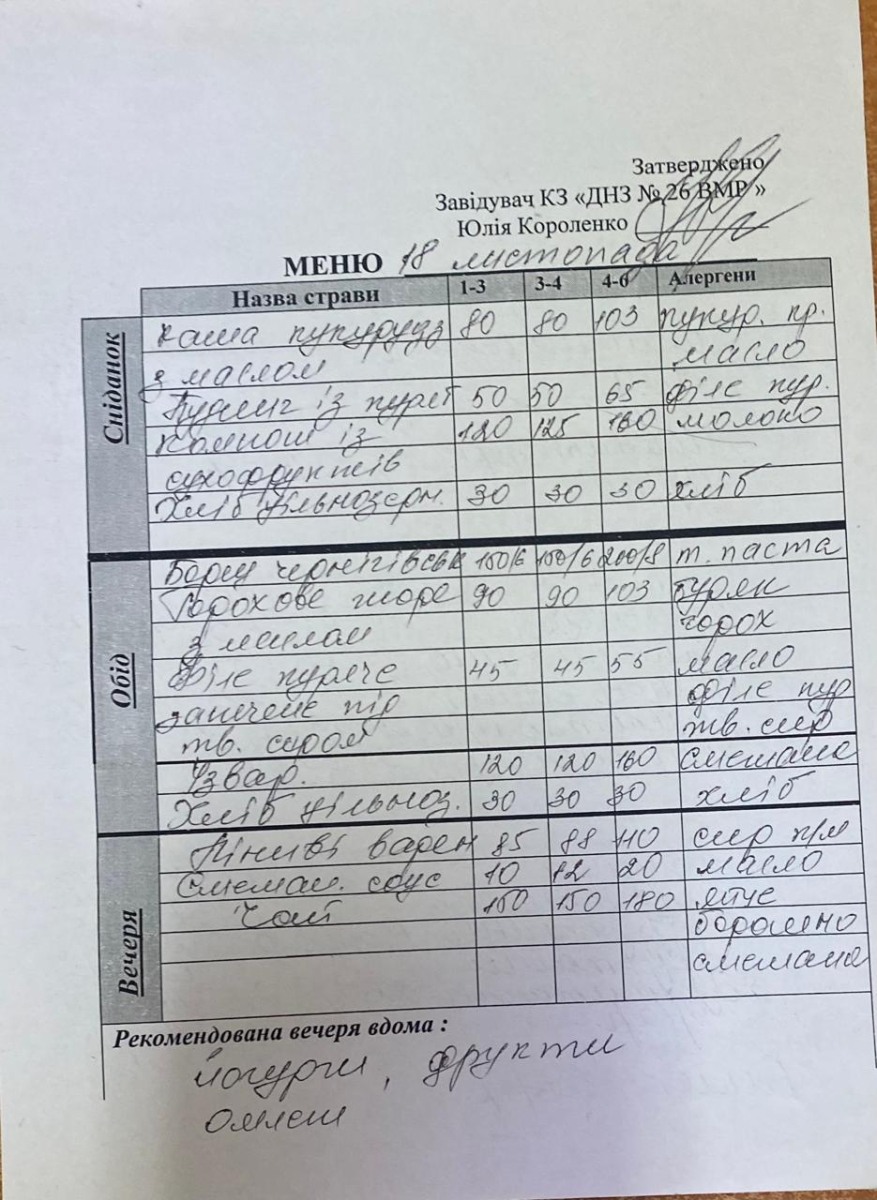 Затверджено
Завідувач КЗ «ДНЗ № 26 ВМР »
Юлія Короленко
МЕНЮ 18 листопада
Назва страви 1-3 3-4 4-6 Алергени
Сніданок
каша кукурудз 80 80 103 кукур. кр.
з маслом масло
Пудинг із курят 50 50 65 філе кур.
Компот із 120 125 160 молоко
сухофруктів
Хліб цільнозерн. 30 30 30 хліб
Обід
Борщ чернігівськ 150/6 150/6 200/8 т. паста
Горохове пюре 90 90 103 буряк
з маслом горох
Філе куряче 45 45 55 масло
запечене під філе кур
тв. сиром тв. сир
Узвар. 120 120 160 сметана
Хліб цільноз. 30 30 30 хліб
Вечеря
Ліниві варен 85 88 110 сир к/м
Сметан. соус 10 12 20 масло
Чай 150 150 180 яйце
борошно
сметана
Рекомендована вечеря вдома :
йогурти, фрукти
омлет